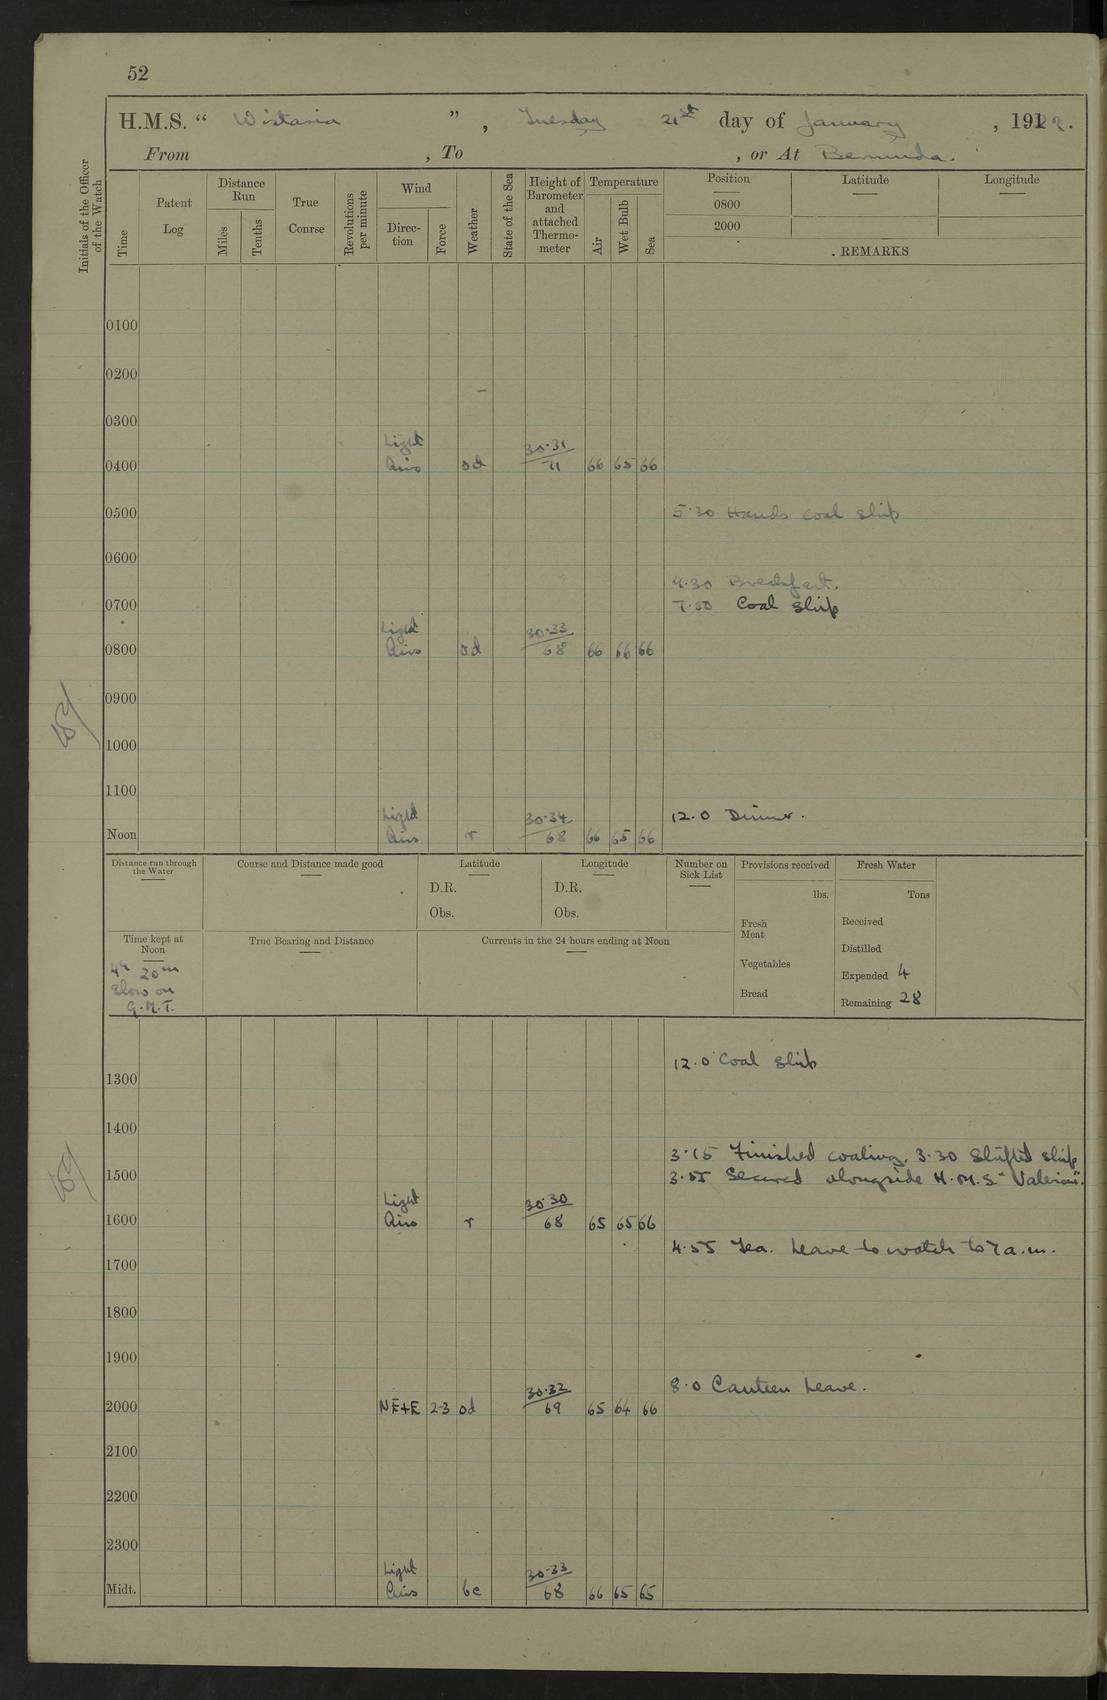 52
H.M.S. “ Wistaria ”, Tuesday 21st day of January, 19
From , To , or At Bermuda.
Initials of the Officer of the Watch
Time
Patent Log
Distance Run
Miles
Tenths
True Course
Revolutions per minute
Wind
Direc-tion
Force
Weather
State of the Sea
Height of Barometer and attached Thermo-meter
Temperature
Air
Wet Bulb
Sea
Position
0800
2000
Latitude
Longitude
REMARKS
0100
0200
0300
Light 30·31
0400 Airs od 71 66 65 66
0500 5·30 Hands coal ship
0600
4·30 Breakfast.
0700 7·50 Coal ship
Light 30·33
0800 Airs od 68 66 66 66
0900
1000
1100
Light 30·34 12.0 Dinner.
Noon Airs r 68 66 65 66
Distance run through the Water
Course and Distance made good
Latitude
D.R.
Obs.
Longitude
D.R.
Obs.
Number on Sick List
Provisions received
lbs.
Fresh Meat
Vegetables
Bread
Fresh Water
Tons
Received
Distilled
Expended 4
Remaining 28
Time kept at Noon
4h 20m
Slow on
G.M.T.
True Bearing and Distance
Currents in the 24 hours ending at Noon
12.0 Coal ship
1300
1400
3·15 Finished coaling. 3·30 Shifted ship
1500 3·55 Secured alongside H.M.S "Valerian".
Light 30·30
1600 Airs r 68 65 65 66
4·55 Tea. Leave to watch to 7 a.m.
1700
1800
1900
30·32 8·0 Canteen Leave.
2000 NE+E 2-3 od 69 65 64 66
2100
2200
2300
Light 30·33
Midt. Airs bc 68 66 65 65